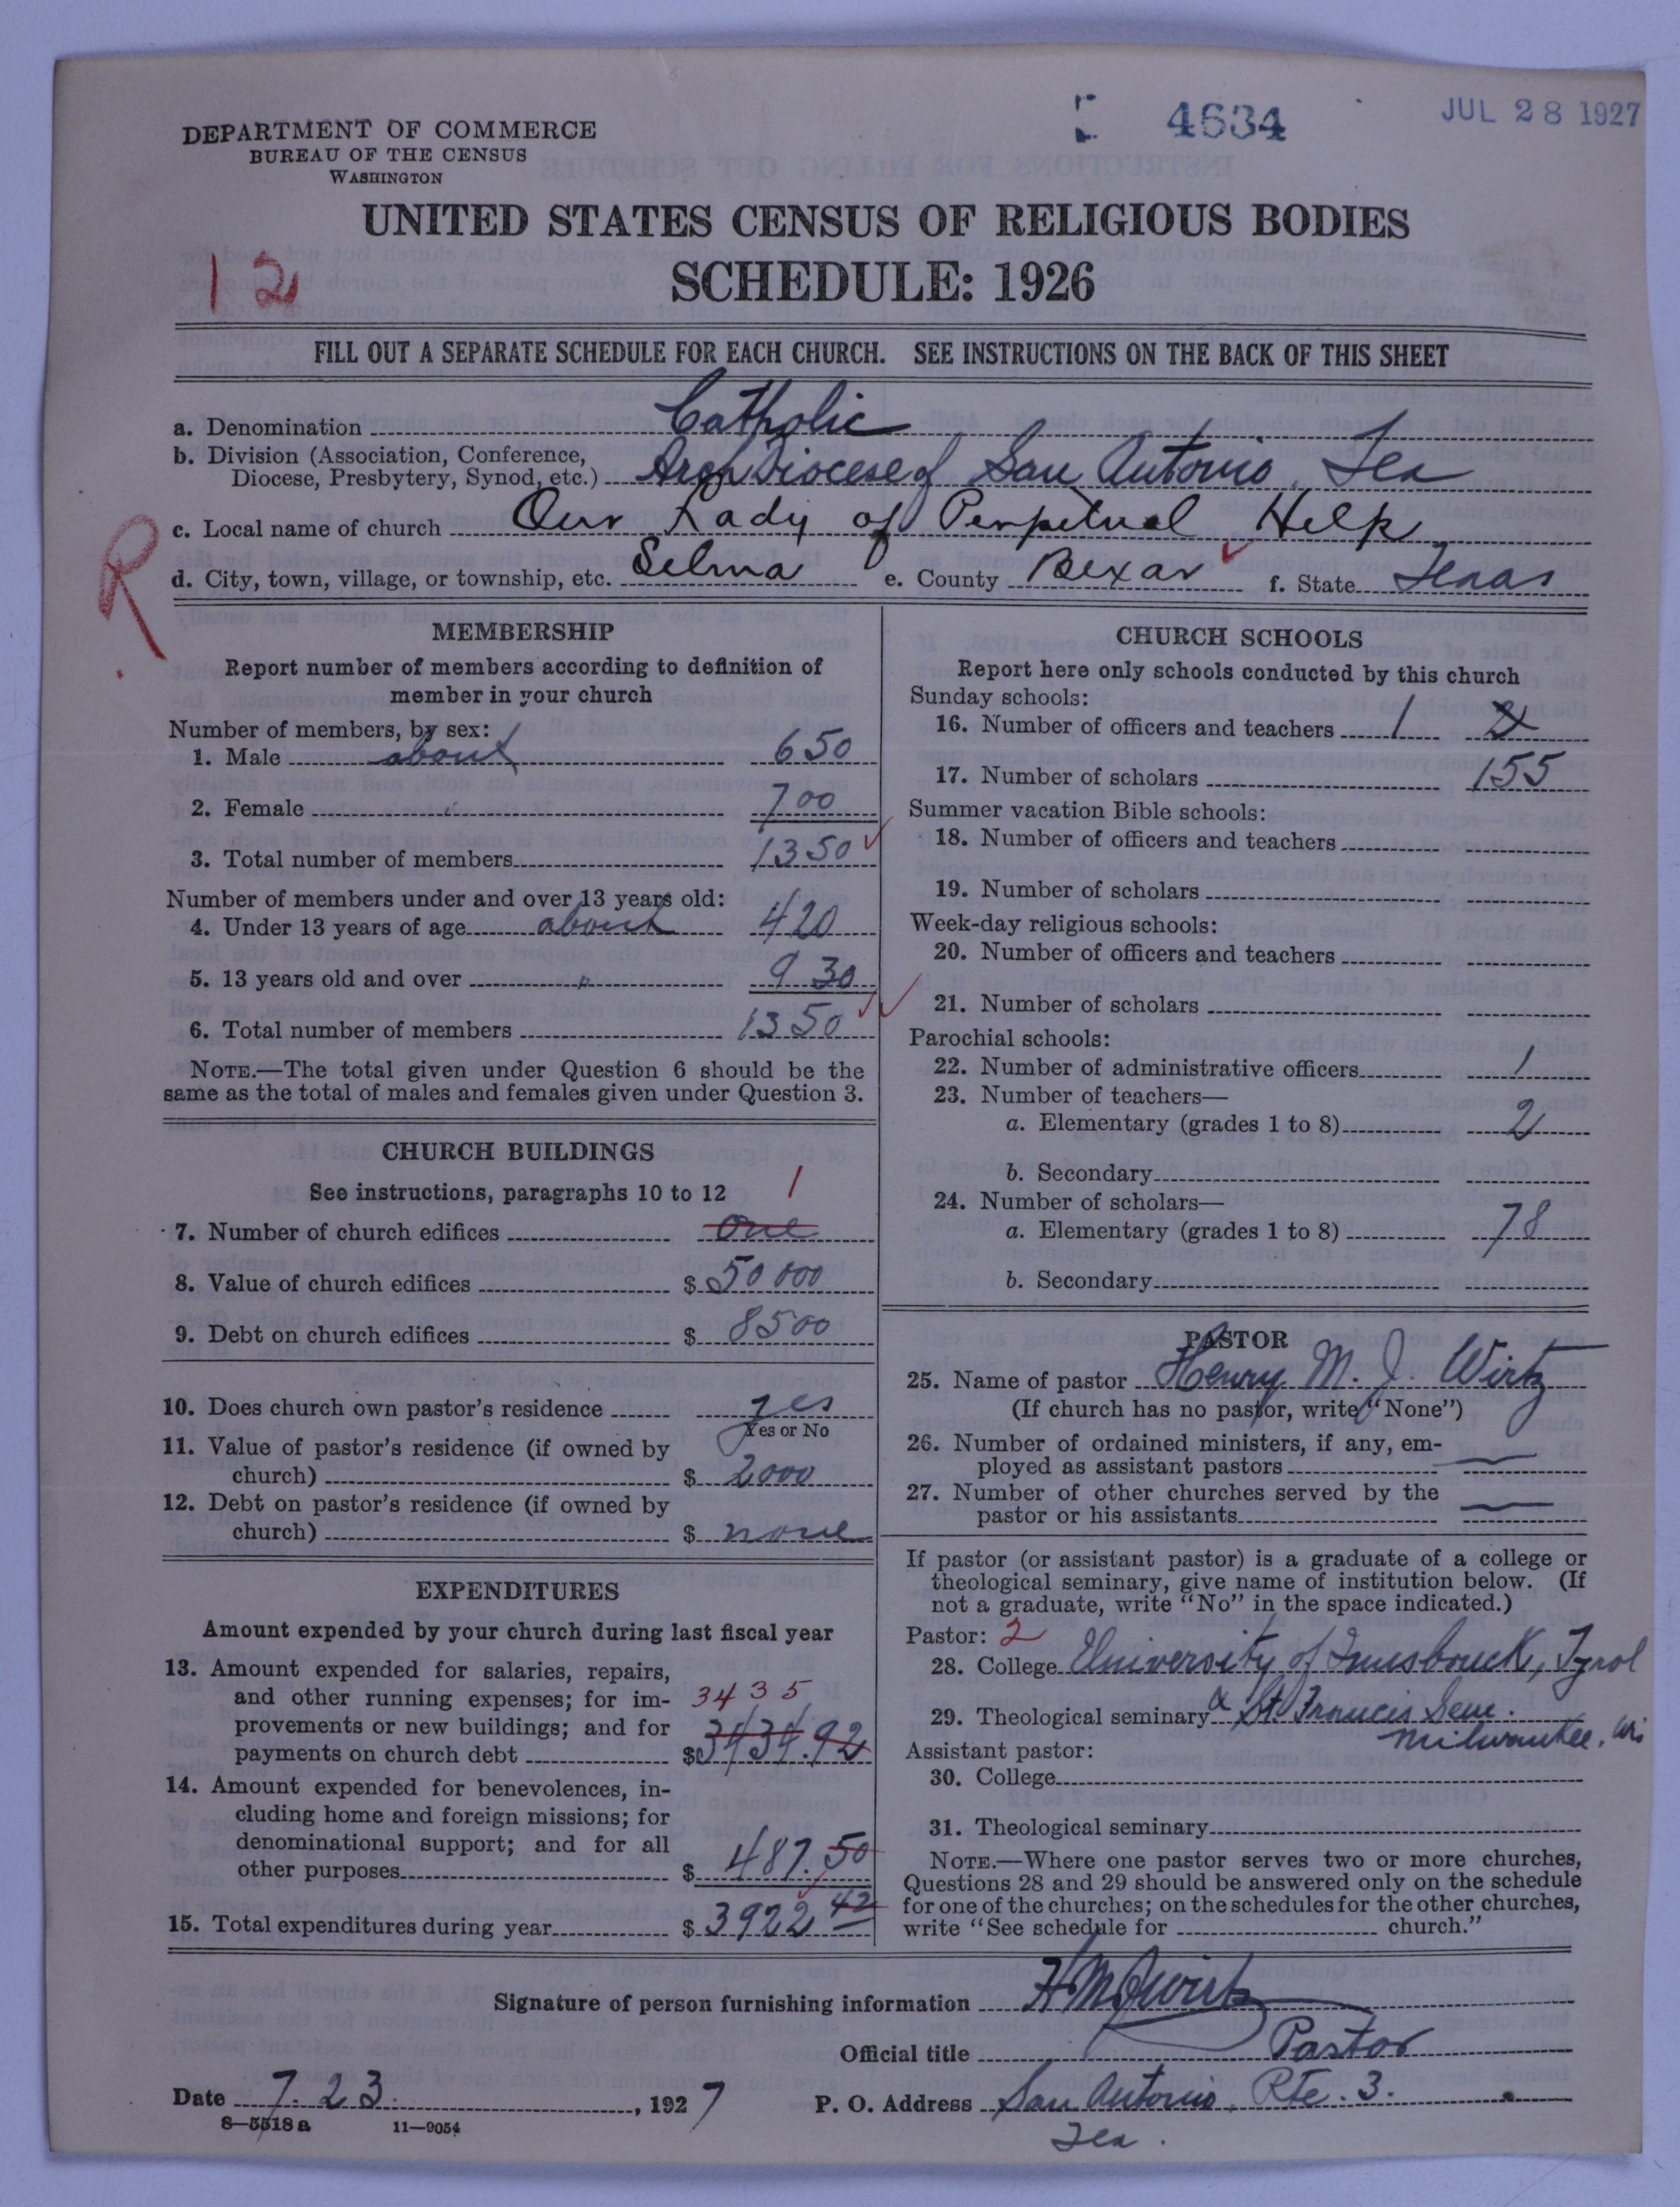 4634
JUL 28 1927
DEPARTMENT OF COMMERCE
BUREAU OF THE CENSUS
WASHINGTON
UNITED STATES CENSUS OF RELIGIOUS BODIES
SCHEDULE: 1926
12
FILL OUT A SEPARATE SCHEDULE FOR EACH CHURCH. SEE INSTRUCTIONS ON THE BACK OF THIS SHEET
a. Denomination Catholic
b. Division (Association, Conference,
Diocese, Presbytery, Synod, etc.) ArchDiocese of San Antonio, Tex
c. Local name of church Our Lady of Perpetual Help
R
d. City, town, village, or township, etc. Selma e. County Bexar f. State Texas
MEMBERSHIP
Report number of members according to definition of
member in your church
Number of members, by sex:
1. Male about 650
2. Female 700
3. Total number of members 1350
Number of members under and over 13 years old:
4. Under 13 years of age about 420
5. 13 years old and over " 930
6. Total number of members 1350
NOTE.—The total given under Question 6 should be the
same as the total of males and females given under Question 3.
CHURCH BUILDINGS
See instructions, paragraphs 10 to 12
1
7. Number of church edifices One
8. Value of church edifices $ 50000
9. Debt on church edifices $ 8500
10. Does church own pastor's residence yes
Yes or No
11. Value of pastor's residence (if owned by
church) $ 2000
12. Debt on pastor's residence (if owned by
church) $ none
EXPENDITURES
Amount expended by your church during last fiscal year
13. Amount expended for salaries, repairs,
and other running expenses; for im- 3435
provements or new buildings; and for
payments on church debt $3434.92
14. Amount expended for benevolences, in-
cluding home and foreign missions; for
denominational support; and for all
other purposes $ 487.50
15. Total expenditures during year $ 3922 42
CHURCH SCHOOLS
Report here only schools conducted by this church
Sunday schools:
16. Number of officers and teachers 1 2
17. Number of scholars 155
Summer vacation Bible schools:
18. Number of officers and teachers
19. Number of scholars
Week-day religious schools:
20. Number of officers and teachers
21. Number of scholars
Parochial schools:
22. Number of administrative officers 1
23. Number of teachers—
a. Elementary (grades 1 to 8) 2
b. Secondary
24. Number of scholars—
a. Elementary (grades 1 to 8) 78
b. Secondary
PASTOR
25. Name of pastor Henry M. J. Wirtz
(If church has no pastor, write "None")
26. Number of ordained ministers, if any, em-
ployed as assistant pastors —
27. Number of other churches served by the
pastor or his assistants —
If pastor (or assistant pastor) is a graduate of a college or
theological seminary, give name of institution below. (If
not a graduate, write "No" in the space indicated.)
Pastor: 2
28. College University of Innsbruck, Tyrol
29. Theological seminary & St. Francis Sem.
Milwaukee, Wis
Assistant pastor:
30. College
31. Theological seminary
NOTE.—Where one pastor serves two or more churches,
Questions 28 and 29 should be answered only on the schedule
for one of the churches; on the schedules for the other churches,
write "See schedule for church."
Signature of person furnishing information H M J Wirtz
Official title Pastor
Date 7. 23. , 1927 P. O. Address San Antonio, Rte. 3.
Tex.
8—5518 a 11—9054